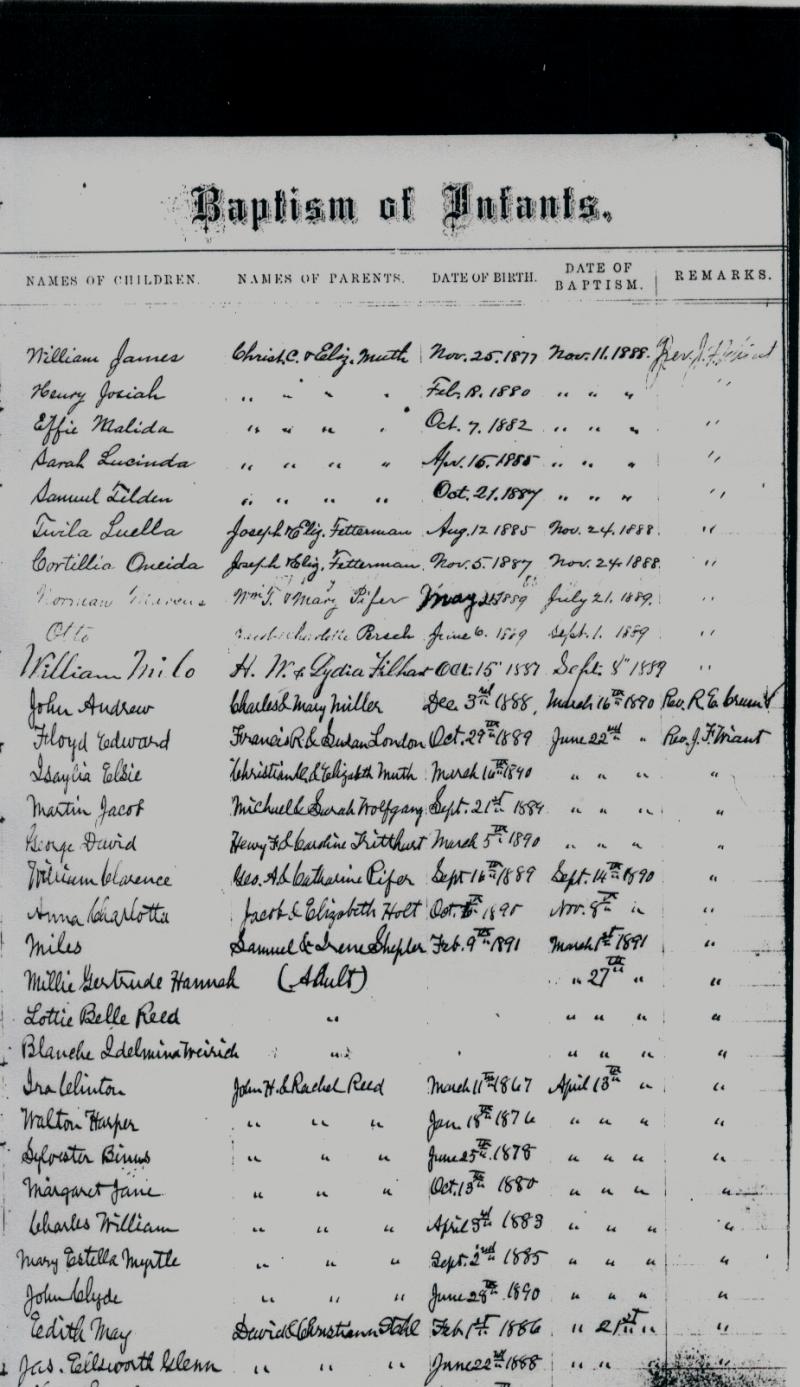 Baptism of Infants.
NAMES OF CHILDREN. NAMES OF PARENTS. DATE OF BIRTH. DATE OF BAPTISM. REMARKS.
William James Christ. C. & Eliz. Muth Nov. 25. 1877 Nov. 11. 1888. Rev. J. F.
Henry Josiah " " " " Feb. 18. 1880 " " " "
Effie Malida " " " " Oct. 7. 1882 " " " "
Sarah Lucinda " " " " Apr. 15. 1885 " " " "
Samuel Tilden " " " " Oct. 21. 1887 " " " "
Twila Luella Joseph & Eliz. Fetterman Aug. 12 1885 Nov. 24. 1888 "
Cortillia Oneida Joseph & Eliz. Fetterman Nov. 5. 1887 Nov. 24. 1888 "
Norman Marcus Wm. T. & Mary Pifer May 1889 July 21. 1889. "
Otto Jacob & Charlotte Persch June 6. 1889 Sept. 1. 1889 "
William Milo H. W. & Lydia Oct. 15" 1887 Sept. 8" 1889 "
John Andrew Charles & Mary Miller Dec. 3rd 1888, March 16th 1890 Rev. R. E.
Floyd Edward Francis R. & Susan London Oct. 29th 1889 June 22nd " Rev. J. F. Wiant
Elsie Christian C. & Elizabeth Muth March 16th 1890 " " " "
Martin Jacob Michael & Sarah Wolfgang Sept. 21st 1889 " " " "
George David Henry F. & Caroline March 5th 1890 " " " "
William Clarence Geo. A. & Catharine Pifer Sept 16th 1889 Sept. 14th 1890 "
Anna Charlotta Jacob & Elizabeth Holt Oct. 1890 Nov. 8th " "
Miles Samuel & Irene Shepler Feb. 9th 1891 March 1st 1891 "
Millie Gertrude Hannah (Adult) " 27th " "
Lottie Belle Reed " " " " "
Blanche Idelmina Weirich " " " " "
Ira Clinton John H. & Rachel Reed March 11th 1867 April 13th " "
Walton Harper " " " Jan. 18th 1876 " " " "
Sylvester Binus " " " June 25th 1878 " " " "
Margaret Jane " " " Oct. 13th 1880 " " " "
Charles William " " " April 3rd 1883 " " " "
Mary Estella Myrtle " " " Sept. 2nd 1885 " " " "
John Clyde " " " June 28th 1890 " " " "
Edith May David & Christiann Stahl Feb. 1st 1886 " 21st " "
Jas. Ellsworth Glenn " " " June 22nd 1888 " "